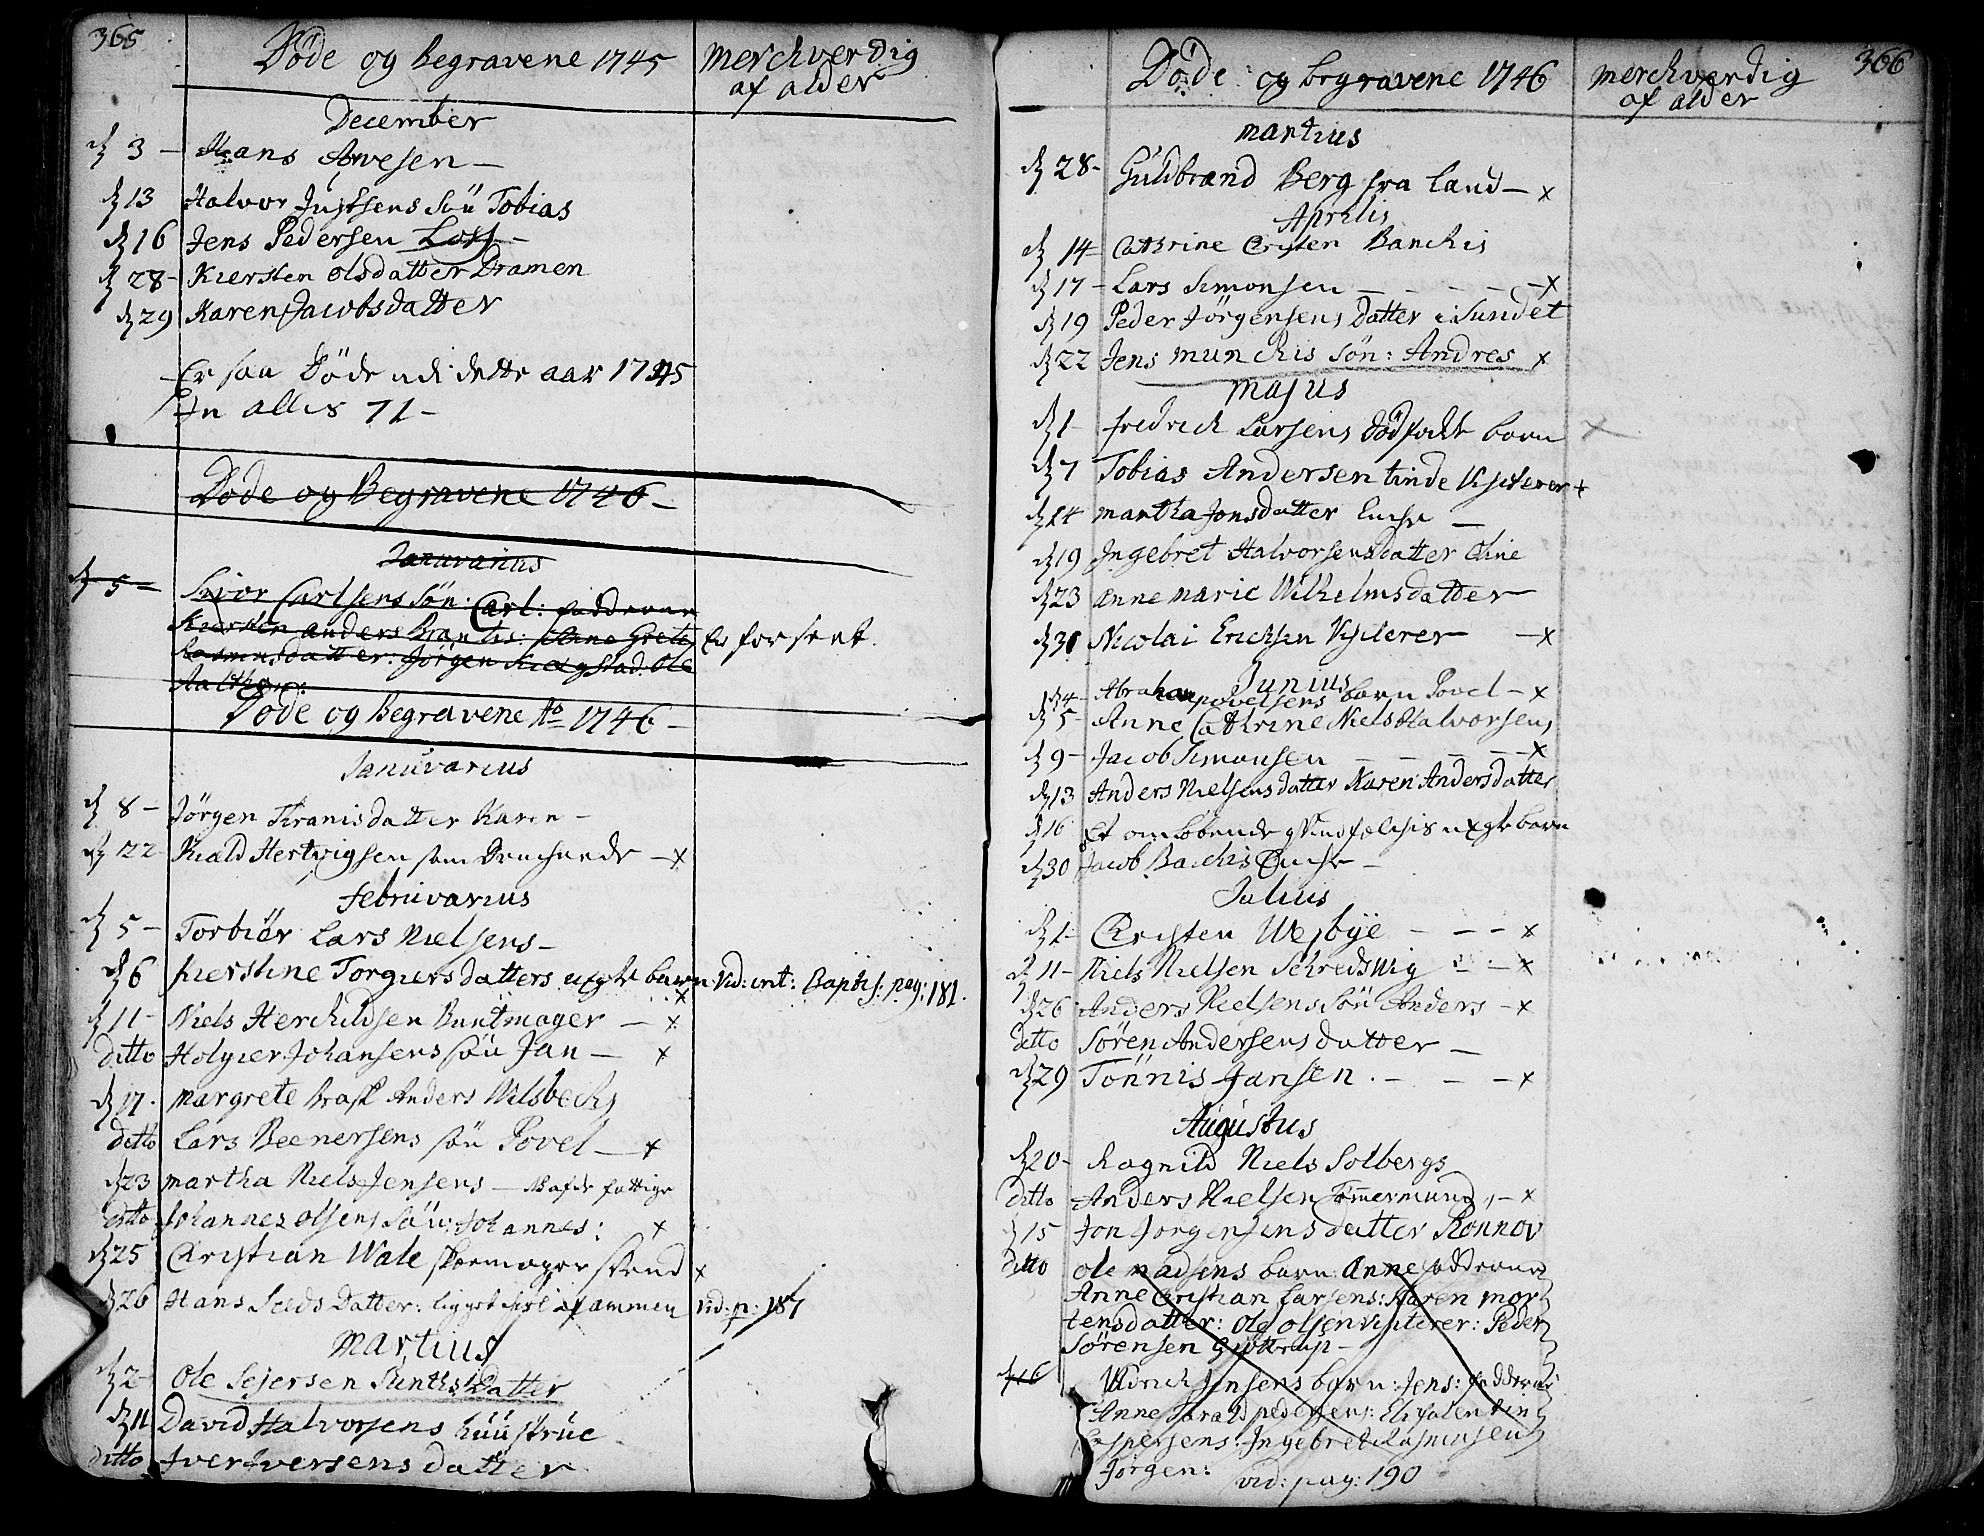 365
Døde og Begravene 1745
merchverdig
af alder
December
d 3 – Hans Arvesen –
d 13 Halvor Justsens Søn Tobias
d 16 Jens Pedersen –
d 28 – Kiersten Olsdatter Dramen
d 29 Karen Jacobsdatter
Er saa Døde udi dette aar 1745
In alles 71 –
Døde og Begravene 1746 –
Januvarius
d 5 – Carlsens Søn: Carl: fadderne
Kiersten anders Grete
datter: Jørgen Ole
Er for sent.
Døde og Begravene Ao 1746 –
Januvarius
d 8 – Jørgen datter Karen –
d 22 Kield Hertvigsen som – x
Februvarius
d 5 – Torbiør Lars Nielsens –
d 6 Kierstine Torgiersdatters uegte barn vid: int: Baptis: pag: 181.
x
d 11 – Niels Herchildsen Buntmager – x
ditto Holgier Johansens søn Jan – x
d 17. margrete Anders Wilsbechs
ditto Lars Beenersens søn Povel – x
d 23 martha Niels Jensens – fattige
ditto Johannes olsens søn: Johannes: x
d 25 Christian Wale x
d 26 Hans Datter: vid: p: 187
Martius
d 2 – Ole Sejersen Datter
d 11 David Halvorsens huustrue
ditto Iver Iversens datter
366
Døde og begravene 1746
merchverdig
af alder
martius
d 28 – Guldbrand Berg fra Land – x
Aprilis
d 14 – Cathrine Cristen Banchis
d 17 – Lars Simonsen – – – – – x
d 19 Peder Jörgensens Datter i Sundet
d 22 Jens munchis søn: Andres x
majus
d 1 – fredrich Larsens Dødfødt barn x
d 7 Tobias Andersen Linde Visiterer x
d 14 martha Jonsdatter Enche –
d 19 Ingebret Halvorsens datter Oline
d 23 anne marie Wilhelmsdatter
d 30 Nicolai Erichsen Visiterer – x
Junius
d 4 – Abraham povelsens barn Povel – x
d 5 – Anne Cathrine Niels Halvorsens
d 9 – Jacob Simonsen – – – – x
d 13 Anders Nielsens datter Karen Andersdatter
d 16 Et omløbende qvindfolchis uegte barn
d 30 Jacob Bachis Enche –
Julius
d 1 – Christen Wesbye – – – x
d 11 – Niels Nielsen – – x
d 26 Anders Nielsens søn Anders – x
ditto Søren Andersens datter –
d 29 Tönnis Jansen. – – – x
Augustus
d 20 – Ragnild Niels Solbergs
ditto Anders Nielsen Tømmermand, – x
15 Jon Jörgensens datter Rønnov
ditto Ole Madsens barn: Anne fadderne
Anne Christian Larsens: Karen mor
tensdatter: Ole olsen Visiterer: Peder
Sørensen
d 16 Jensens barn: Jens: fadderne
Anne Harald pedersens:
Espersens: Ingebret Rasmusen
Jørgen: vid: pag: 190